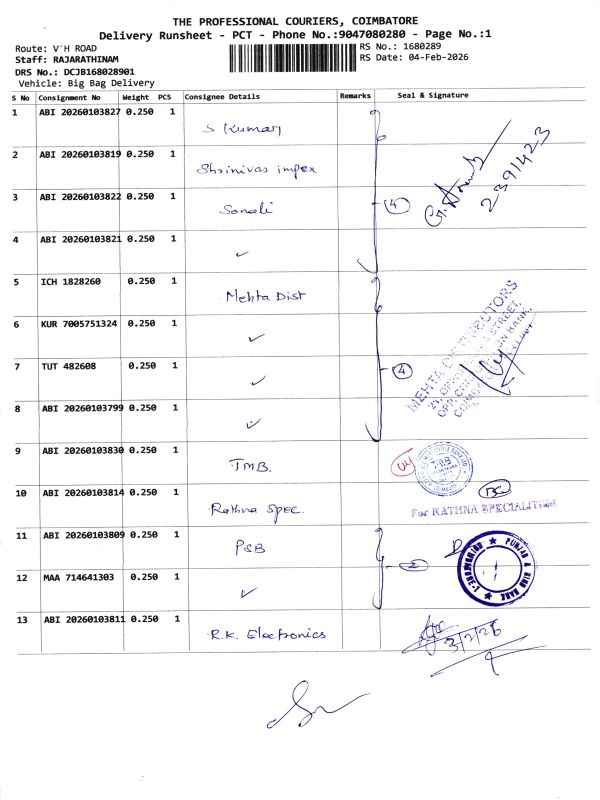 THE PROFESSIONAL COURIERS, COIMBATORE
Delivery Runsheet - PCT - Phone No.:9047080280 - Page No.:1
Route: V'H ROAD
RS No.: 1680289
Staff: RAJARATHINAM
RS Date: 04-Feb-2026
DRS No.: DCJB168028901
Vehicle: Big Bag Delivery
S No Consignment No Weight PCS Consignee Details Remarks Seal & Signature
1 ABI 20260103827 0.250 1 S Kumar
2 ABI 20260103819 0.250 1 Shrinivas impex
2391423
3 ABI 20260103822 0.250 1 Sonali
4
4 ABI 20260103821 0.250 1 ✓
5 ICH 1828260 0.250 1 Mehta Dist
6 KUR 7005751324 0.250 1 ✓
MEHTA DISTRIBUTORS
7 TUT 482608 0.250 1 ✓
4
8 ABI 20260103799 0.250 1 ✓
9 ABI 20260103830 0.250 1 TMB.
TMB
10 ABI 20260103814 0.250 1 Rathna Spec.
For RATHNA SPECIALITIES
11 ABI 20260103809 0.250 1 PSB
2
PUNJAB & SIND BANK
12 MAA 714641303 0.250 1 ✓
13 ABI 20260103811 0.250 1 R.K. Electronics
3/2/26